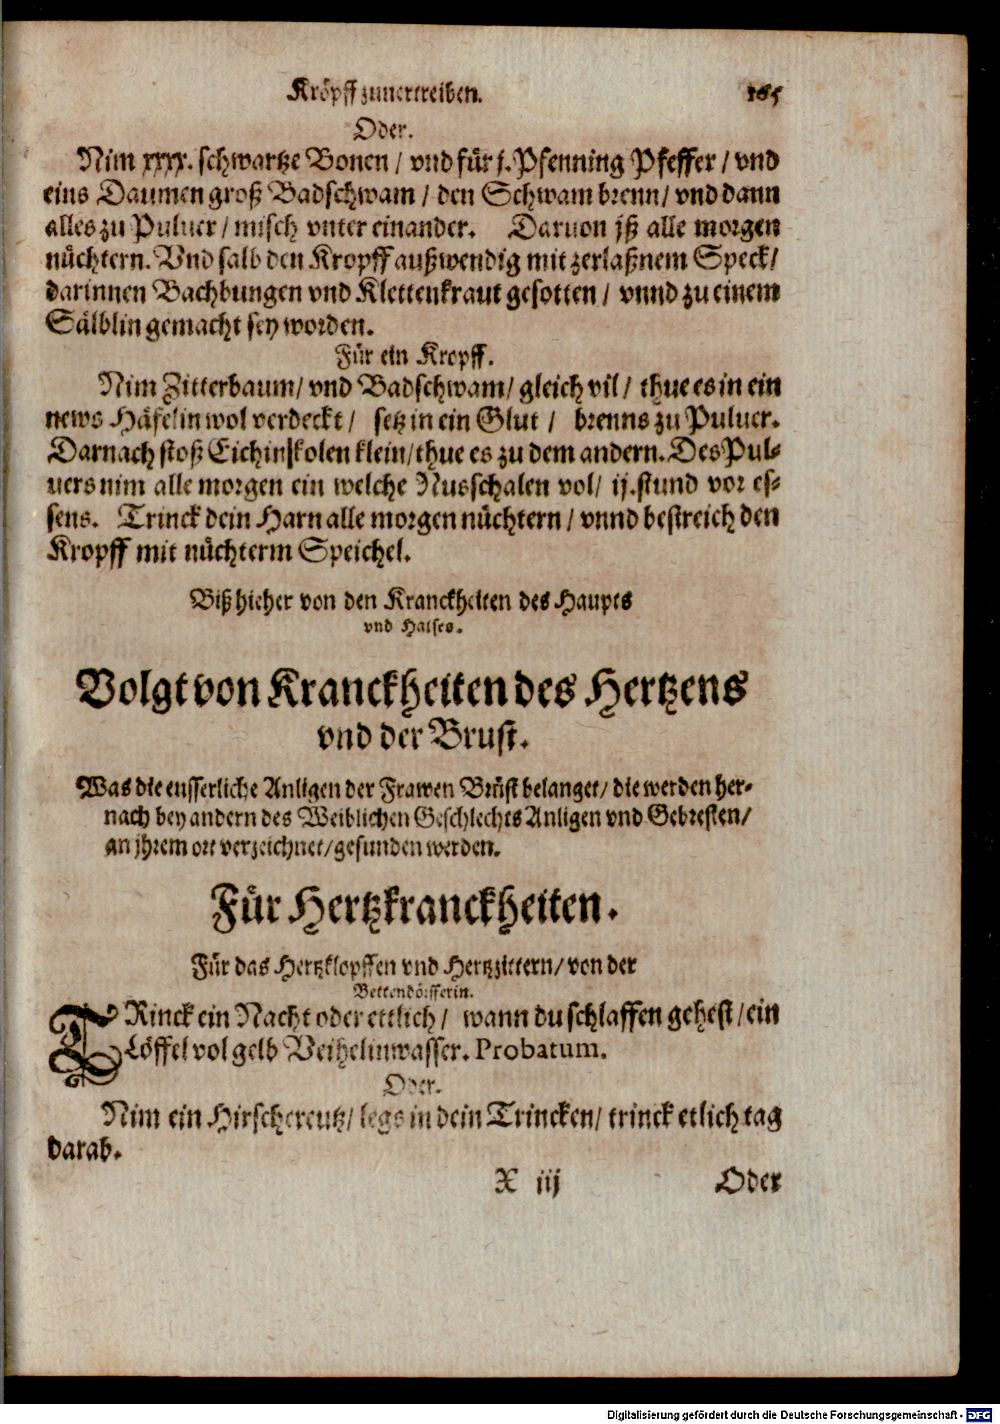 Kröpff zuuertreiben. 165
Oder.
Nim xxxx. schwartze Bonen / vnd für j. Pfenning Pfeffer / vnd
eins Daumen groß Badschwam / den Schwam brenn / vnd dann
alles zu Puluer / misch vnter einander. Daruon jß alle morgen
nüchtern. Vnd salb den Kropff außwendig mit zerlaßnem Speck /
darinnen Bachbungen vnd Klettenkraut gesotten / vnnd zu einem
Sälblin gemacht sey worden.
Für ein Kropff.
Nim Zitterbaum / vnd Badschwam / gleich vil / thue es in ein
news Häfelin wol verdeckt / setz in ein Glut / brenns zu Puluer.
Darnach stoß Eichinkolen klein / thue es zu dem andern. Des Pul-
uers nim alle morgen ein welche Nusschalen vol / ij. stund vor es-
sens. Trinck dein Harn alle morgen nüchtern / vnnd bestreich den
Kropff mit nüchterm Speichel.
Biß hieher von den Kranckheiten des Haupts
vnd Halses.
Volgt von Kranckheiten des Hertzens
vnd der Brust.
Was die eusserliche Anligen der Frawen Brüst belanget / die werden her-
nach bey andern des Weiblichen Geschlechts Anligen vnd Gebresten /
an jhrem ort verzeichnet / gefunden werden.
Für Hertzkranckheiten.
Für das Hertzklopffen vnd Hertzzittern / von der
Bettendörfferin.
TRinck ein Nacht oder ettlich / wann du schlaffen gehest / ein
Löffel vol gelb Veihelinwasser. Probatum.
Oder.
Nim ein Hirschcreutz / legs in dein Trincken / trinck etlich tag
darab.
X iij Oder
Digitalisierung gefördert durch die Deutsche Forschungsgemeinschaft - DFG